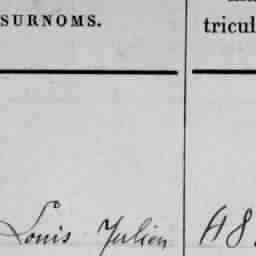 SURNOMS.
tricul
Louis Julien
A8